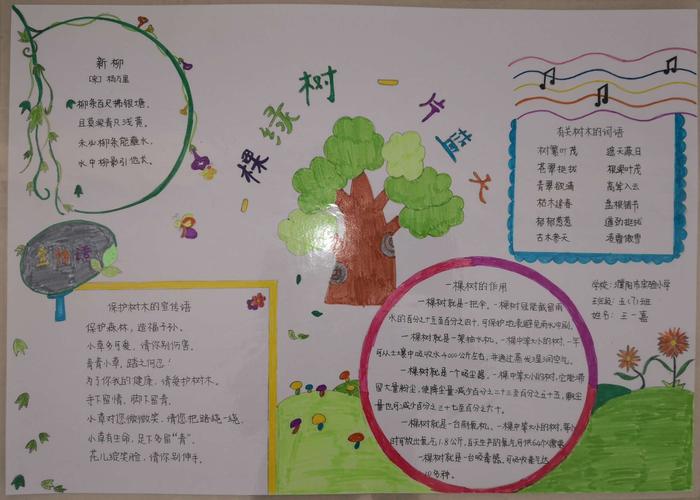 一棵绿树 一片蓝天
新柳
[宋] 杨万里
柳条百尺拂银塘,
且莫深青只浅黄。
未必柳条能蘸水,
水中柳影引他长。
有关树木的词语
树繁叶茂 遮天蔽日
苍翠挺拔 根深叶茂
青翠欲滴 高耸入云
枯木逢春 盘根错节
郁郁葱葱 遒劲挺拔
古木参天 凌霜傲雪
学校:濮阳市实验小学
班级:五(7)班
姓名:王一嘉
宣传语
保护树木的宣传语
保护森林,造福子孙。
小草多可爱,请你别伤害。
青青小草,踏之何忍!
为了你我的健康,请爱护树木。
手下留情,脚下留青。
小草对您微微笑,请您把路绕一绕。
小草有生命,足下多留“青”。
花儿绽笑脸,请你别伸手。
一棵树的作用
一棵树就是一把伞。一棵树冠能截留雨
水的百分之十五至百分之四十,可保护地表避免雨水冲刷。
一棵树就是一架抽水机。一棵中等大小的树,一年
可从土壤中吸收水4000公斤左右,并通过蒸发湿润空气。
一棵树就是一个吸尘器。一棵中等大小的树,它能滞
留大量粉尘,使降尘量减少百分之二十三至百分之五十二,飘尘
量也可减少百分之三十七至百分之六十。
一棵树就是一台制氧机。一棵中等大小的树,每小
时可放出氧气1.8公斤,白天生产的氧气可供64个
一棵树就是一台吸毒器。可吸收氯气达
10多种。